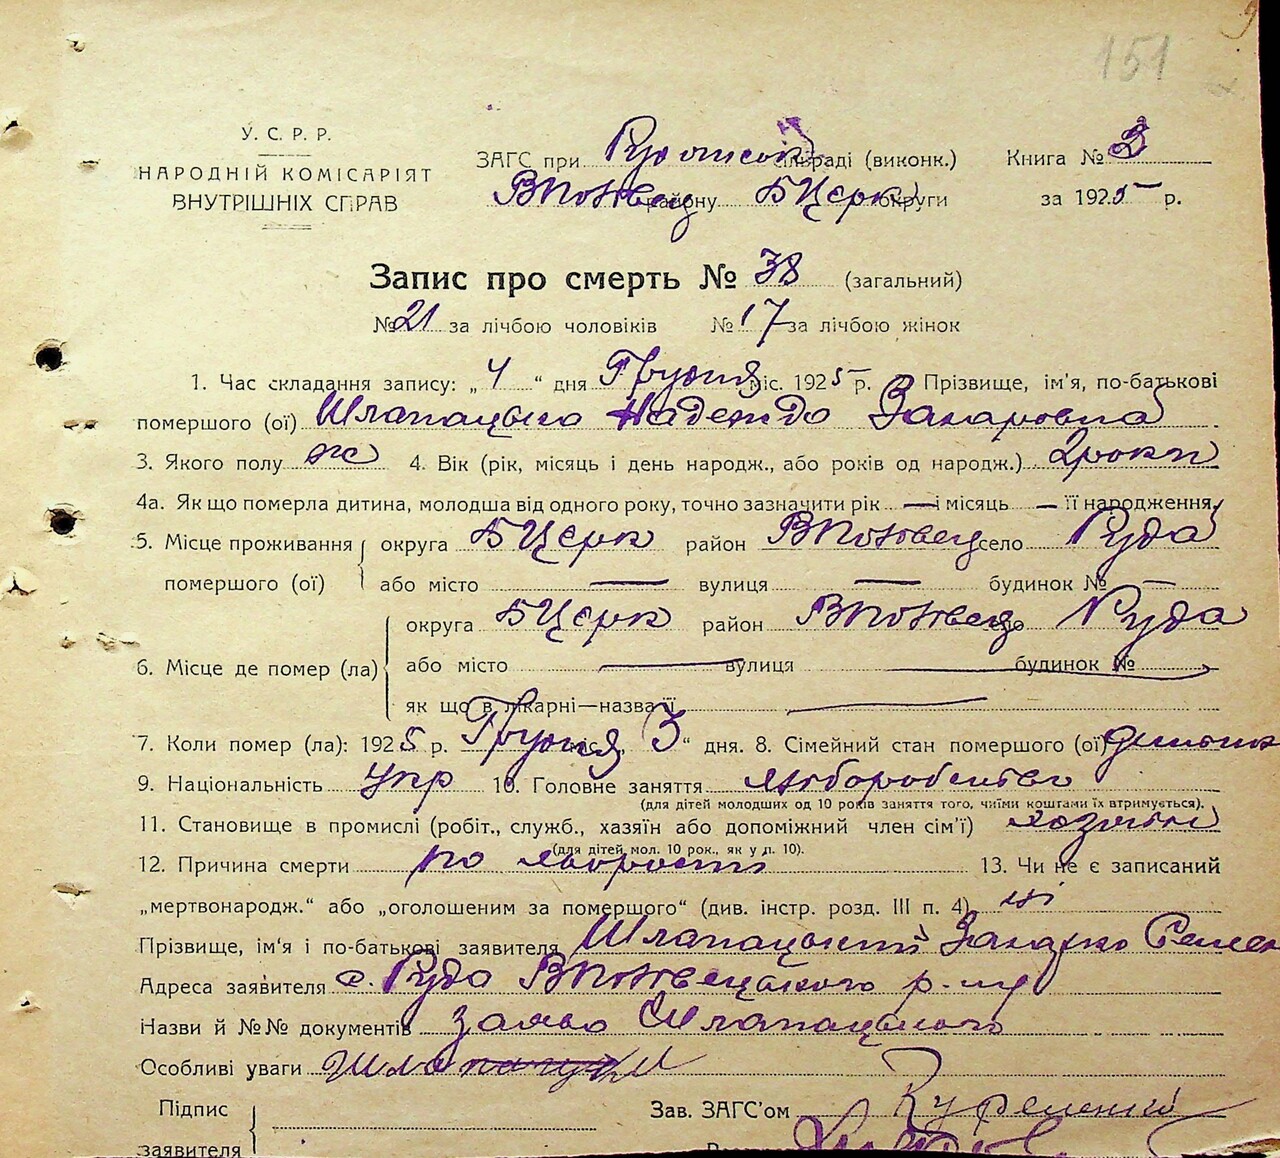 151
У. С. Р. Р.
НАРОДНІЙ КОМІСАРІЯТ
ВНУТРІШНІХ СПРАВ
ЗАГС при сільраді (виконк.)
району БЦерк округи
Книга № 3
за 1925 р.
Запис про смерть № 38 (загальний)
№ 21 за лічбою чоловіків № 17 за лічбою жінок
1. Час складання запису: „4“ дня Грудня міс. 1925 р. 2. Прізвище, ім'я, по-батькові
помершого (ої) Шлапацька Надежда Захаровна
3. Якого полу ж 4. Вік (рік, місяць і день народж., або років од народж.) 2 роки
4а. Як що померла дитина, молодша від одного року, точно зазначити рік — і місяць — її народження
5. Місце проживання округа БЦерк район село Руда
помершого (ої) або місто — вулиця — будинок № —
округа БЦерк район село Руда
6. Місце де помер (ла) або місто — вулиця — будинок №
як що в лікарні—назва її —
7. Коли помер (ла): 1925 р. Грудня міс. „3“ дня. 8. Сімейний стан помершого (ої)
9. Національність укр 10. Головне заняття хліборобство
(для дітей молодших од 10 років заняття того, чиїми коштами їх втримується).
11. Становище в промислі (робіт., служб., хазяїн або допоміжний член сім'ї) хозяїн
(для дітей мол. 10 рок., як у п. 10).
12. Причина смерти по хворости 13. Чи не є записаний
„мертвонародж.“ або „оголошеним за помершого“ (див. інстр. розд. III п. 4) ні
Прізвище, ім'я і по-батькові заявителя Шлапацький Захарко
Адреса заявителя с. Руда
Назви й №№ документів заява Шлапацького
Особливі уваги
Підпис
заявителя
Зав. ЗАГС'ом Куременко